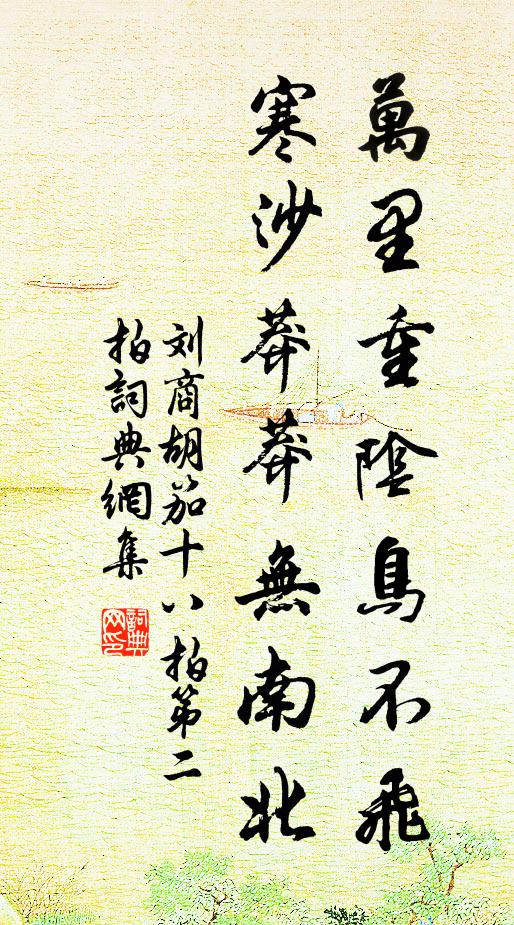 萬里重陰鳥不飛
寒沙莽莽無南北
刘商胡笳十八拍第二
拍詞典網集
詞典
网印